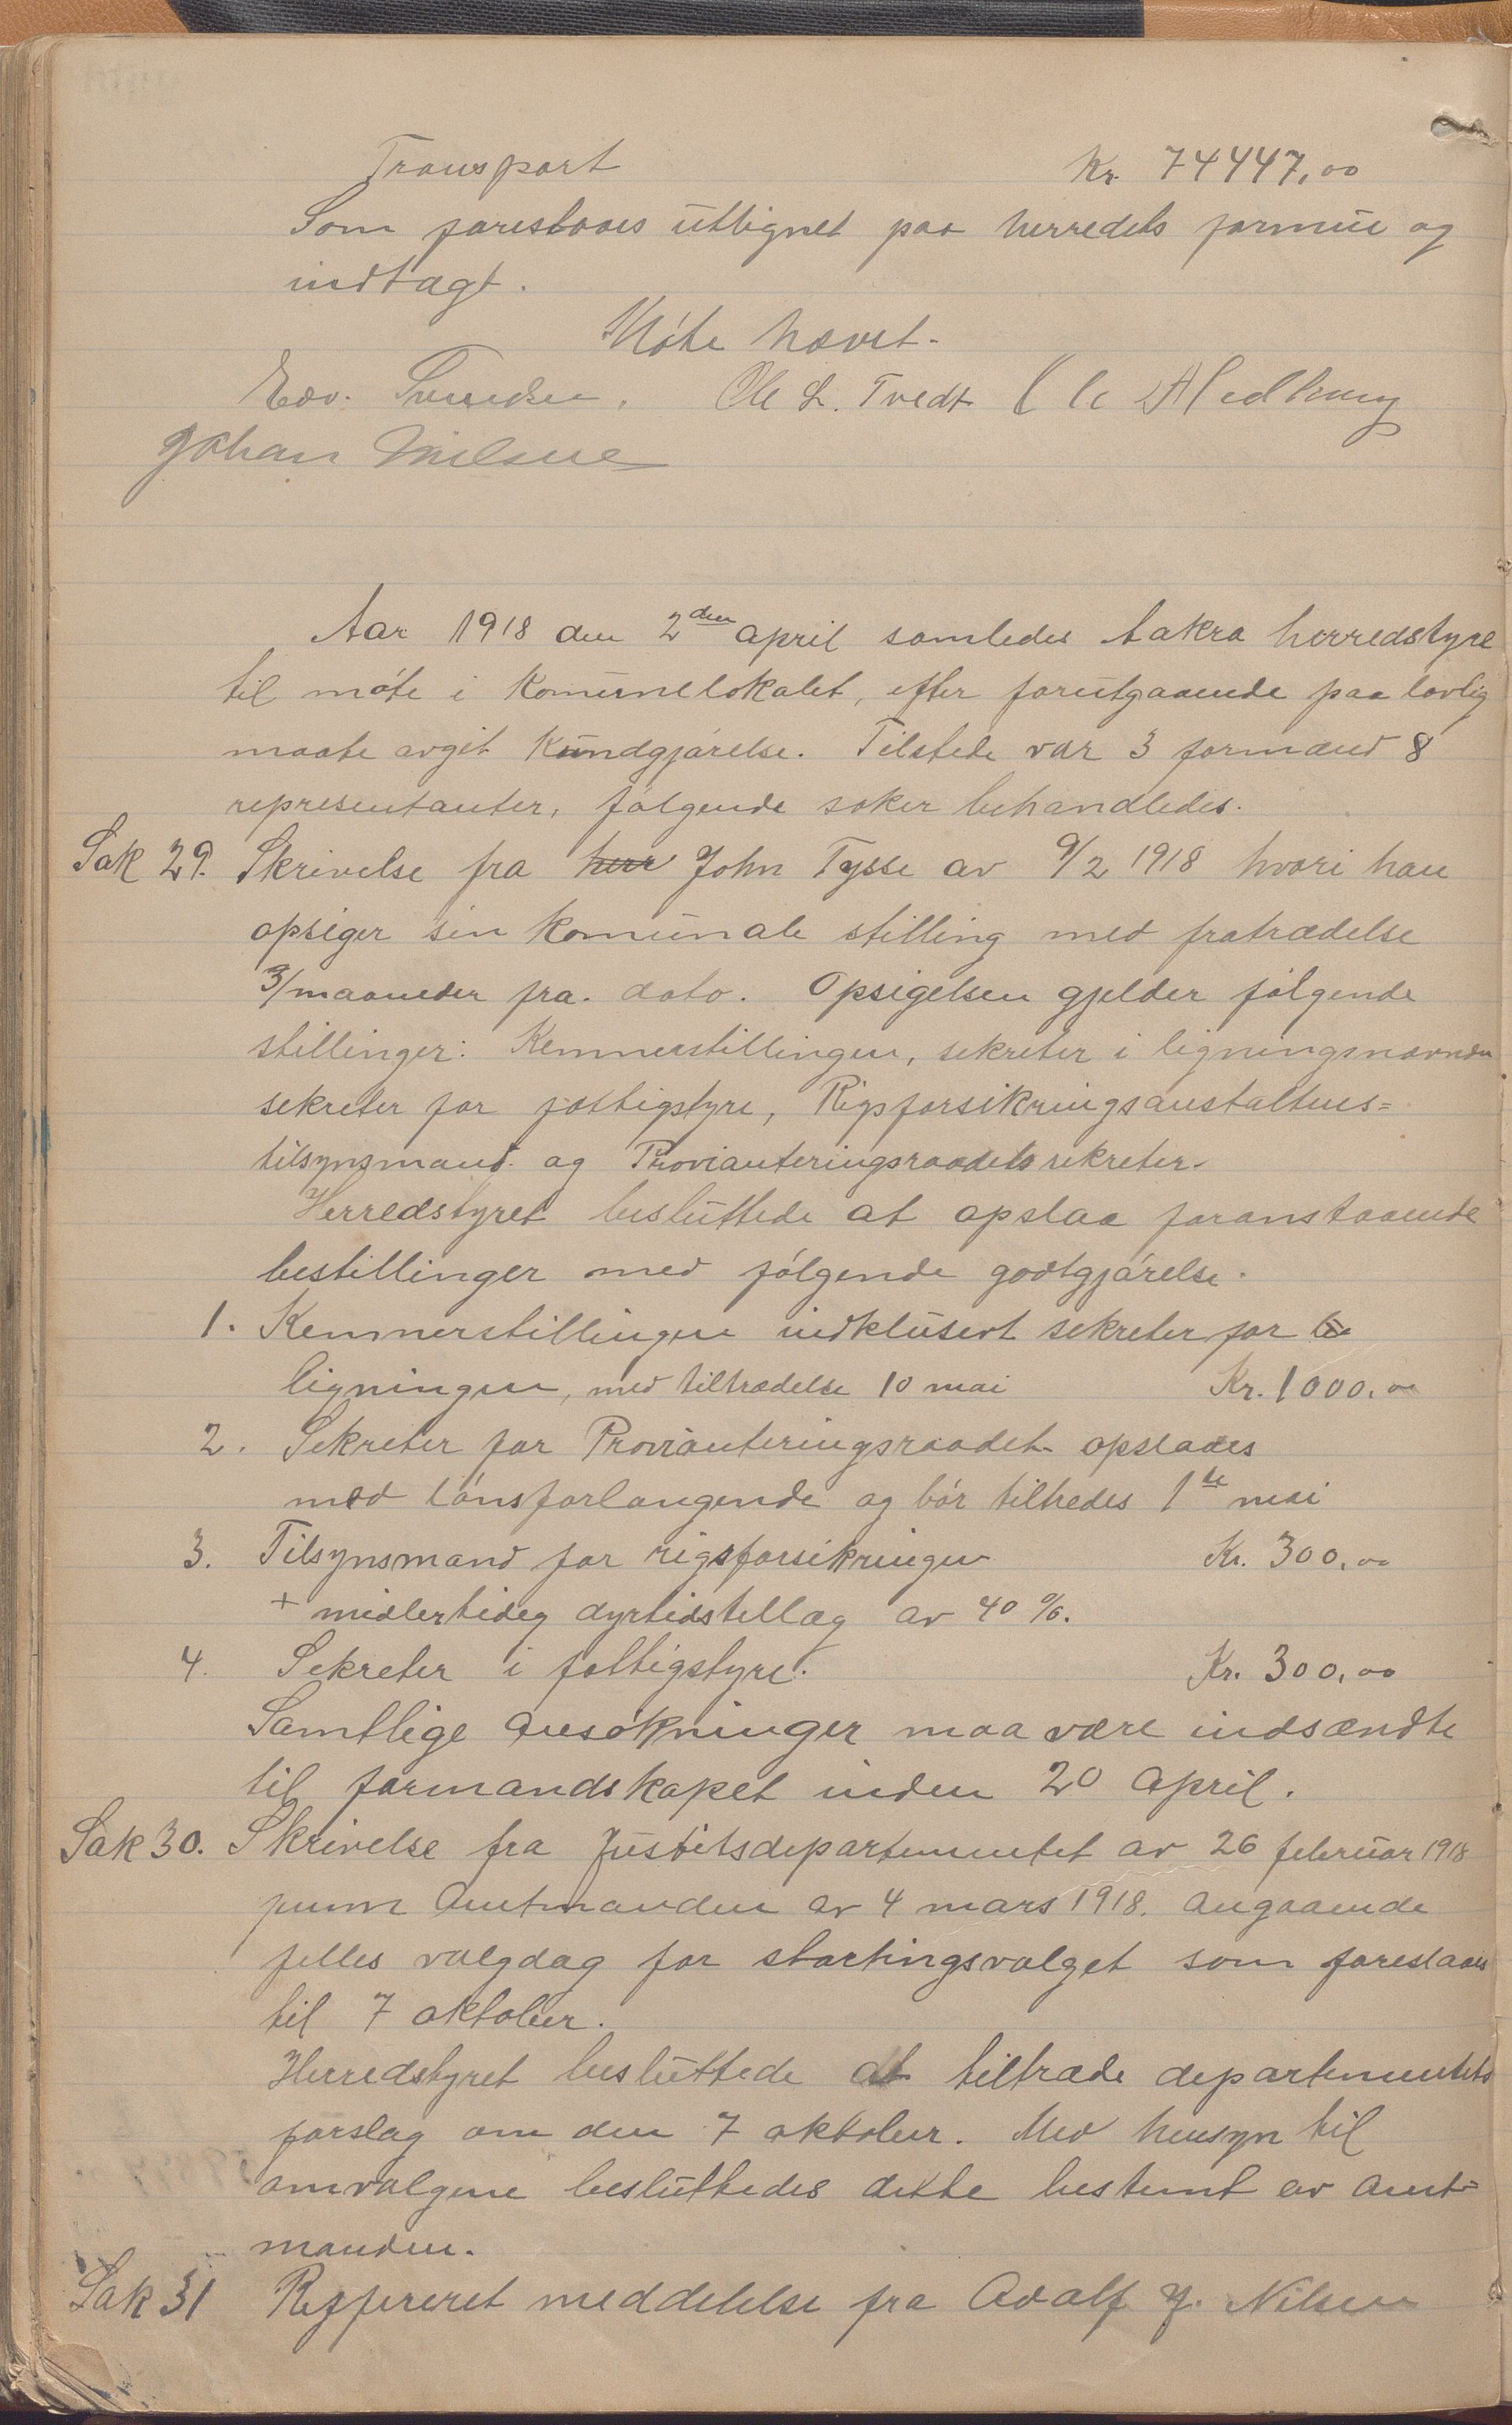 Transport Kr. 74447,00
Som foreslaaes utlignet paa herredets formue og
indtægt.
Møte hævet.
Edv. Svendsen. Ole L. Tvedt Ole Medhaug
Johan Nilsen
Aar 1918 den 2den april samledes Aakra herredstyre
til møte i Komunelokalet, efter forutgaaende paa lovlig
maate avgit Kundgjørelse. Tilstede var 3 formænd 8
representanter, følgende saker behandledes.
Sak 29. Skrivelse fra herr John Tysse av 9/2 1918 hvori han
opsiger sin komunale stilling med fratrædelse
3/maaneder fra. dato. Opsigelsen gjelder følgende
stillinger: Kemnerstillingen, sekretær i ligningsnævnden
sekretær for fattigstyre, Rigsforsikringsanstaltens=
tilsynsmand. og Provianteringsraadets sekretær.
Herredstyret besluttede at opslaa foranstaaende
bestillinger med følgende godtgjørelse.
1. Kemnerstillingen indklusert sekretær for
ligningen, med tiltrædelse 10 mai Kr. 1000.00
2. Sekretær for Provianteringsraadet opslaaes
med lønsforlangende og bør tiltredes 1ste mai
3. Tilsynsmand for rigsforsikringen Kr. 300,00
+ midlertidig dyrtidstillæg av 40 %.
4. Sekretær i fattigstyre. Kr. 300,00
Samtlige ansøkninger maa være indsændte
til formandskapet inden 20 april.
Sak 30. Skrivelse fra Justitsdepartementet av 26 februar 1918
pr Amtmanden av 4 mars 1918. angaaende
felles valgdag for stortingsvalget som foreslaaes
til 7 oktober.
Herredstyret besluttede at tiltræde departementets
forslag om den 7 oktober. Med hensyn til
omvalgene besluttedes dette bestemt av Amt=
manden.
Sak 31 Refereret meddelelse fra Adolf J. Nilsen